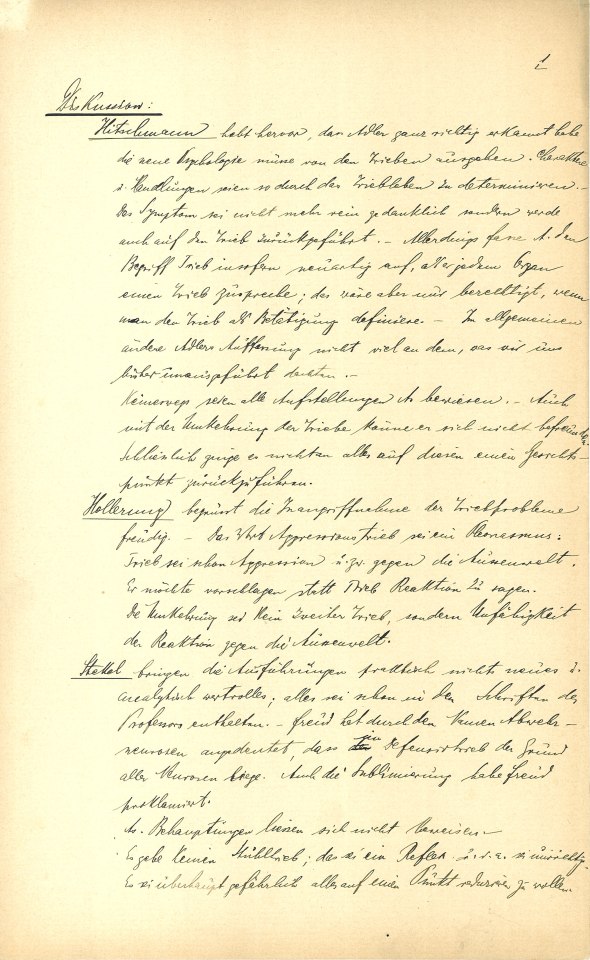 1
Diskussion:
Hitschmann hebt hervor, dass Adler ganz richtig erkannt habe
die neue Psychologie müsse von den Trieben ausgehen. Charaktere
u. Handlungen seien so durch das Triebleben zu determinieren. –
Das Symptom sei nicht mehr rein gedanklich sondern werde
auch auf den Trieb zurückgeführt. – Allerdings fasse A. den
Begriff Trieb insofern neuartig auf, als er jedem Organ
einen Trieb zuspreche; das wäre aber nur berechtigt, wenn
man den Trieb als Betätigung definiere. – Im allgemeinen
ändere Adlers Auffassung nicht viel an dem, was wir uns
bisher unausgeführt dachten. –
Keineswegs seien alle Aufstellungen As bewiesen. – Auch
mit der Umkehrung der Triebe könne er sich nicht befreunden.
Schliesslich ginge es nicht an alles auf diesen einen Gesichts-
punkt zurückzuführen.
Hollerung begrüsst die Inangriffnahme der Triebprobleme
freudig. – Das Wort Aggressionstrieb sei ein Pleonasmus:
Trieb sei schon Aggression u. zw. gegen die Aussenwelt.
Er möchte vorschlagen statt Trieb Reaktion zu sagen.
Die Umkehrung sei kein zweiter Trieb, sondern Unfähigkeit
der Reaktion gegen die Aussenwelt.
Stekel bringen die Ausführungen praktisch nichts neues u.
analytisch wertvolles; alles sei schon in den Schriften des
Professors enthalten. – Freud hat durch den Namen Abwehr-
neurosen angedeutet, dass ein Defensivtrieb der Grund
aller Neurosen liege. Auch die Sublimierung habe Freud
proklamiert.
As. Behauptungen liessen sich nicht beweisen. –
Es gebe keinen Stuhltrieb; das sei ein Reflex u. s. w. sei unrichtig.
Es sei überhaupt gefährlich alles auf einen Punkt reduzieren zu wollen.